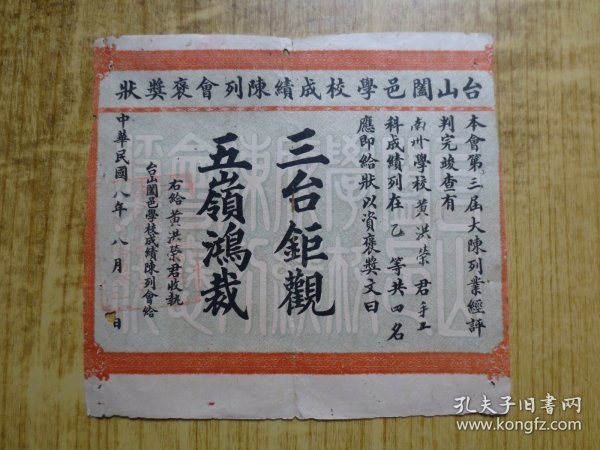 台山闔邑學校成績陳列會褒獎狀
本會第三屆大陳列業經評
判完竣查有
南州學校黃洪榮君手工
科成績列在乙等共四名
應即給狀以資褒獎文曰
三台鉅觀
五嶺鴻裁
右給黃洪榮君收執
台山闔邑學校成績陳列會給
中華民國八年八月 日
孔夫子旧书网
www.kongfz.com